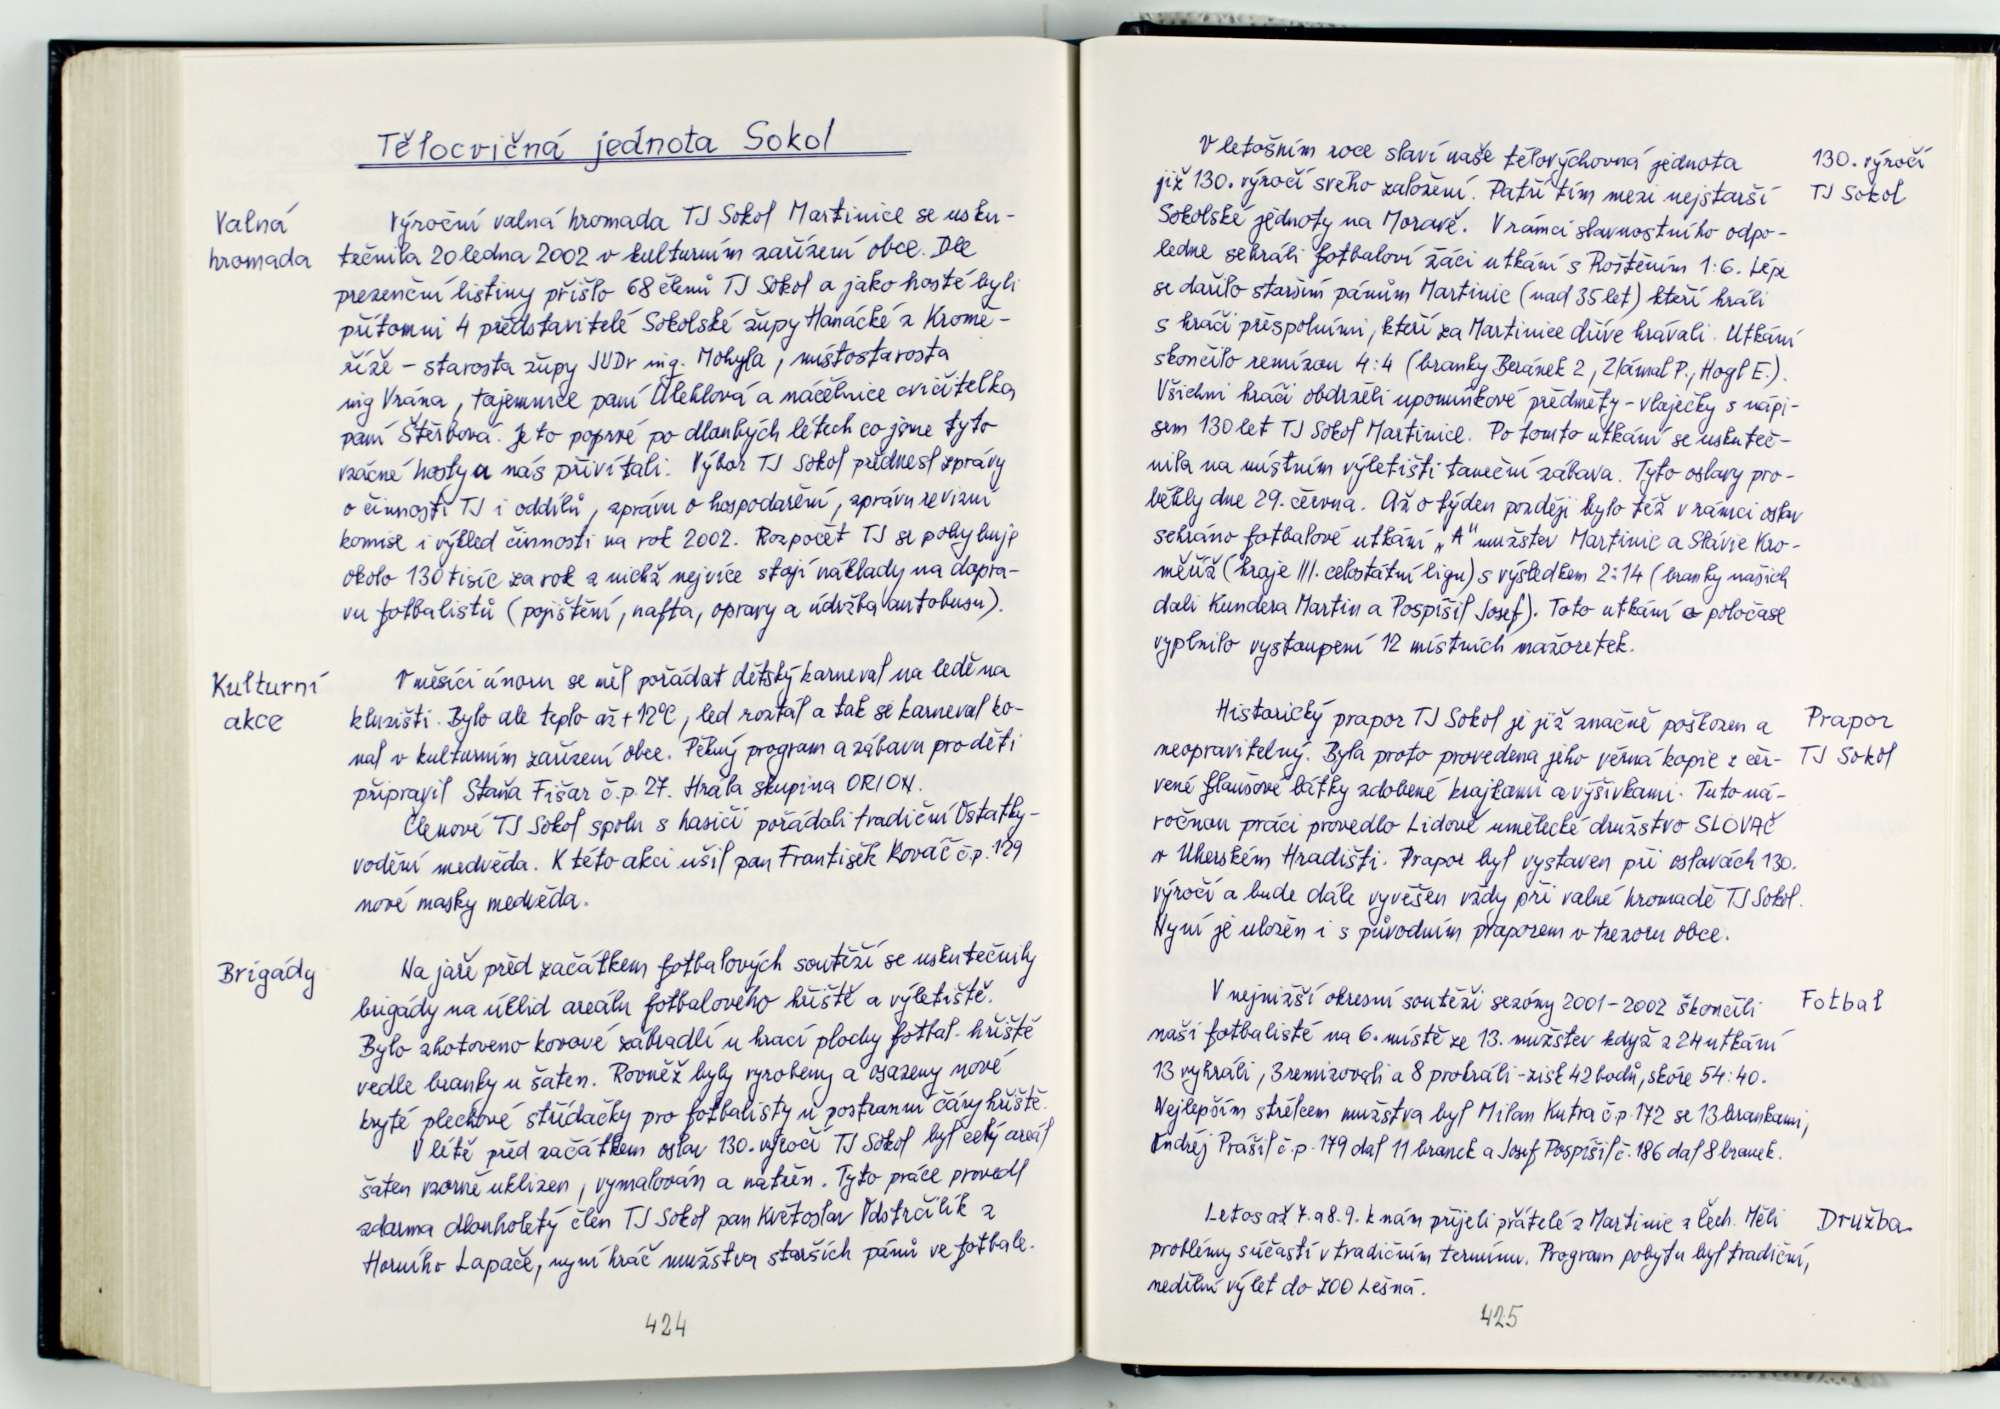 Tělocvičná jednota Sokol
Valná
hromada
Výroční valná hromada TJ Sokol Martinice se usku-
tečnila 20 ledna 2002 v kulturním zařízení obce. Dle
prezenční listiny přišlo 68 členů TJ Sokol a jako hosté byli
přítomni 4 představitelé Sokolské župy Hanácké z Kromě-
říže - starosta župy JUDr ing. Mohyla, místostarosta
ing Vrána, tajemnice paní Úlehlová a náčelnice cvičitelka
paní Štěrbová. Je to poprvé po dlouhých létech co jsme tyto
vzácné hosty u nás přivítali. Výbor TJ Sokol přednesl zprávy
o činnosti TJ i oddílů, zprávu o hospodaření, zprávu revizní
komise i výhled činnosti na rok 2002. Rozpočet TJ se pohybuje
okolo 130 tisíc za rok z nichž nejvíce stojí náklady na dopra-
vu fotbalistů (pojištění, nafta, opravy a údržba autobusu).
Kulturní
akce
V měsíci únoru se měl pořádat dětský karneval na ledě na
kluzišti. Bylo ale teplo až +12°C, led roztál a tak se karneval ko-
nal v kulturním zařízení obce. Pěkný program a zábavu pro děti
připravil Staňa Fišar č.p. 27. Hrála skupina ORION.
Členové TJ Sokol spolu s hasiči pořádali tradiční Ostatky-
vodění medvěda. K této akci ušil pan František Kovář č.p. 129
nové masky medvěda.
Brigády
Na jaře před začátkem fotbalových soutěží se uskutečnily
brigády na úklid areálu fotbalového hřiště a výletiště.
Bylo zhotoveno kovové zábradlí u hrací plochy fotbal. hřiště
vedle branky u šaten. Rovněž byly vyrobeny a osazeny nové
kryté plechové střídačky pro fotbalisty u postranní čáry hřiště.
V létě před začátkem oslav 130. výročí TJ Sokol byl celý areál
šaten vzorně uklizen, vymalován a natřen. Tyto práce provedl
zdarma dlouholetý člen TJ Sokol pan Květoslav Odstrčilík z
Horního Lapače, nyní hráč mužstva starších pánů ve fotbale.
424
V letošním roce slaví naše tělovýchovná jednota
již 130. výročí svého založení. Patří tím mezi nejstarší
Sokolské jednoty na Moravě. V rámci slavnostního odpo-
ledne sehráli fotbaloví žáci utkání s Roštěním 1:6. Lépe
se dařilo starším pánům Martinic (nad 35 let) kteří hráli
s hráči přespolními, kteří za Martinice dříve hrávali. Utkání
skončilo remízou 4:4 (branky Beránek 2, Zlámal P., Hogl E.).
Všichni hráči obdrželi upomínkové předměty - vlaječky s nápi-
sem 130 let TJ Sokol Martinice. Po tomto utkání se uskuteč-
nila na místním výletišti taneční zábava. Tyto oslavy pro-
běhly dne 29. června. Až o týden později bylo též v rámci oslav
sehráno fotbalové utkání „A" mužstev Martinic a Slávie Kro-
měříž (hraje III. celostátní ligu) s výsledkem 2:14 (branky našich
dali Kundera Martin a Pospíšil Josef). Toto utkání o poločase
vyplnilo vystoupení 12 místních mažoretek.
130. výročí
TJ Sokol
Historický prapor TJ Sokol je již značně poškozen a
neopravitelný. Byla proto provedena jeho věrná kopie z čer-
vené flaušové látky zdobené krajkami a výšivkami. Tuto ná-
ročnou práci provedlo Lidové umělecké družstvo SLOVAČ
v Uherském Hradišti. Prapor byl vystaven při oslavách 130.
výročí a bude dále vyvěšen vždy při valné hromadě TJ Sokol.
Nyní je uložen i s původním praporem v trezoru obce.
Prapor
TJ Sokol
V nejnižší okresní soutěži sezóny 2001-2002 skončili
naši fotbalisté na 6. místě ze 13. mužstev když z 24 utkání
13 vyhráli, 3 remizovali a 8 prohráli - zisk 42 bodů, skóre 54:40.
Nejlepším střelcem mužstva byl Milan Kutra č.p. 172 se 13 brankami,
Ondřej Prášil č.p. 179 dal 11 branek a Josef Pospíšil č. 186 dal 8 branek.
Fotbal
Letos až 7. a 8. 9. k nám přijeli přátelé z Martinic z Čech. Měli
problémy s účastí v tradičním termínu. Program pobytu byl tradiční,
nedělní výlet do ZOO Lešná.
Družba
425